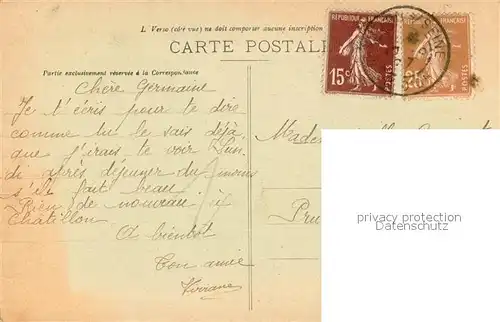 1. Verso (côté vue) ne doit comporter aucune inscription
CARTE POSTALE
Partie exclusivement réservée à la Correspondance
RÉPUBLIQUE FRANÇAISE
15c
POSTES
RÉPUBLIQUE FRANÇAISE
POSTES
SEINE
Chère Germaine
Je t'écris pour te dire
comme tu le sais déjà
que j'irais te voir Lun-
di après déjeuner du moins
s'il fait beau.
Rien de nouveau ici
Châtillon
A bientôt
Ton amie
Viviane
Made
Pru
privacy protection
Datenschutz